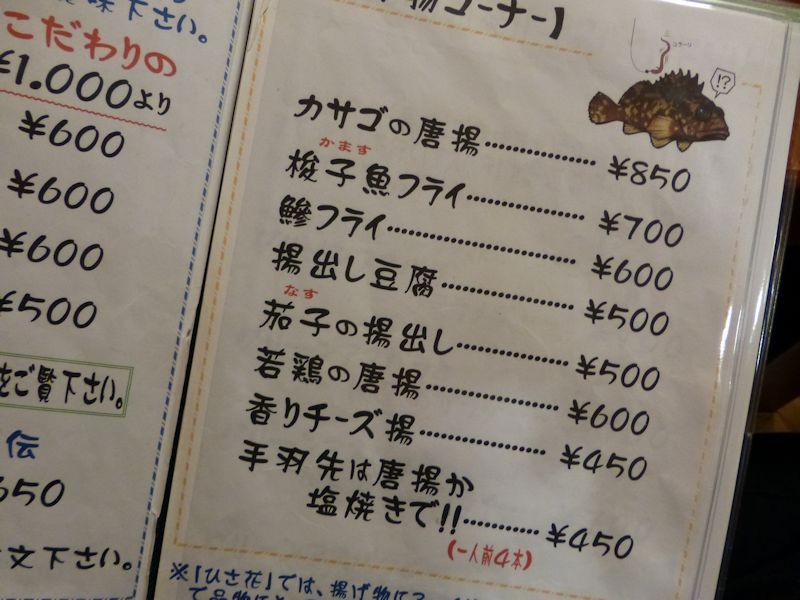 味下さい。
こだわりの
¥1.000より
¥600
¥600
¥600
¥500
ご覧下さい。
伝
650
文下さい。
物コーナー】
!?
カサゴの唐揚 ¥850
かます
梭子魚フライ ¥700
鯵フライ ¥600
揚出し豆腐 ¥500
なす
茄子の揚出し ¥500
若鶏の唐揚 ¥600
香りチーズ揚 ¥450
手羽先は唐揚か
塩焼きで!! ¥450
(一人前4本)
※「ひさ花」では、揚げ物に